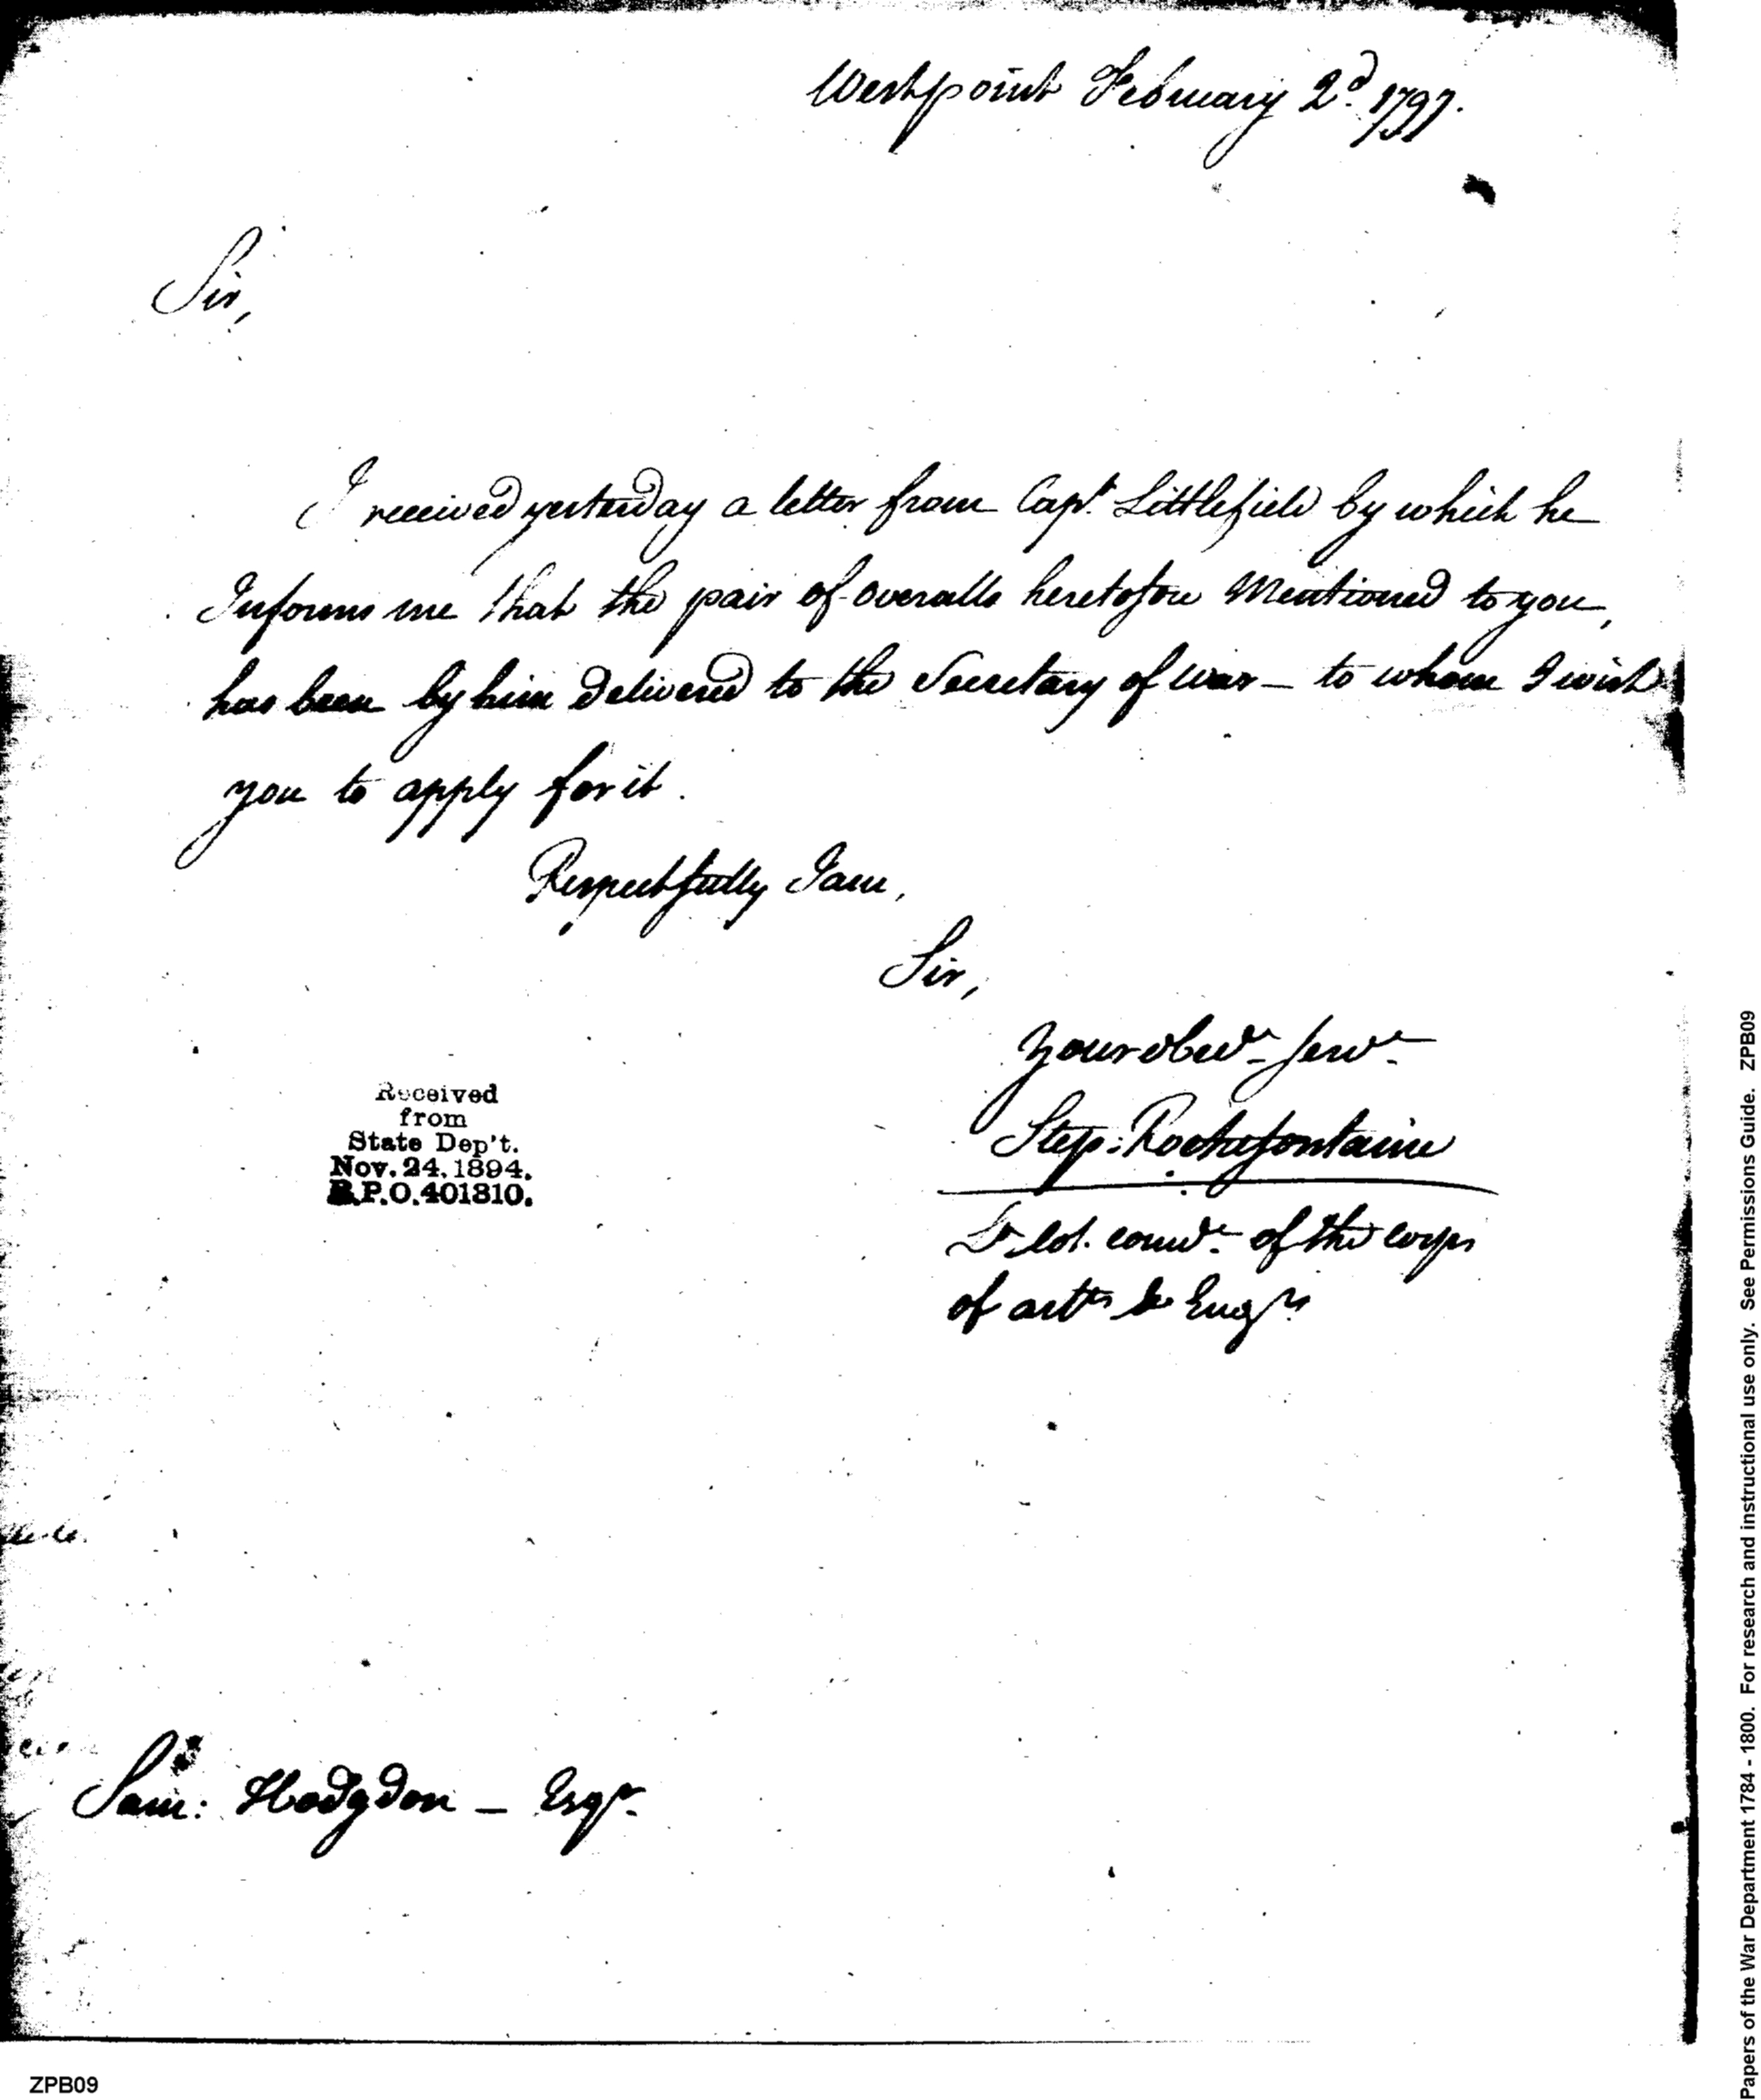 Westpoint February 2d. 1797.
Sir,
I received yesterday a letter from Capt. Littlefield by which he
Informs me that the pair of overalls heretofore Mentioned to you,
has been by him delivered to the Secretary of war – to whom I wish
you to apply for it.
Respectfully I am,
Sir,
Your obedt. servt.
Step: Rochefontaine
Lt Col. comdt. of the corps
of artts & Engrs
Received
from
State Dep't.
Nov. 24, 1894.
R.P.O. 401310.
Saml: Hodgdon – Esqr.
ZPB09
Papers of the War Department 1784 - 1800. For research and instructional use only. See Permissions Guide. ZPB09